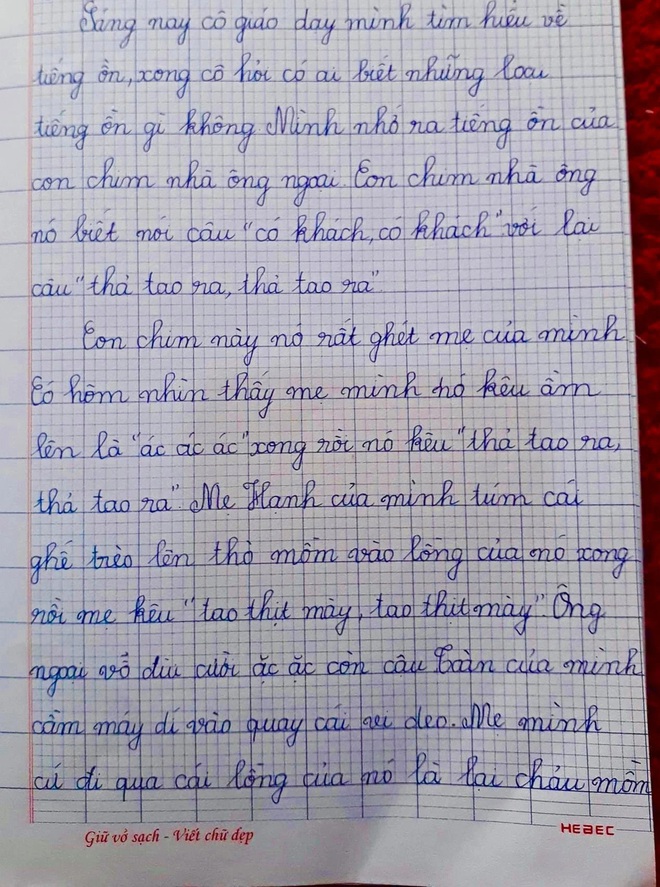 Sáng nay cô giáo dạy mình tìm hiểu về
tiếng ồn, xong cô hỏi có ai biết những loại
tiếng ồn gì không. Mình nhớ ra tiếng ồn của
con chim nhà ông ngoại. Con chim nhà ông
nó biết nói câu "có khách, có khách" với lại
câu "thả tao ra, thả tao ra"
Con chim này nó rất ghét mẹ của mình
Có hôm nhìn thấy mẹ mình nó kêu ầm
lên là "ác ác ác" xong rồi nó kêu "thả tao ra,
thả tao ra". Mẹ Hạnh của mình túm cái
ghế trèo lên thò mồm vào lồng của nó xong
rồi mẹ kêu "tao thịt mày, tao thịt mày". Ông
ngoại vỗ đùi cười ặc ặc còn cậu Bàn của mình
cầm máy dí vào quay cái deo. Mẹ mình
cứ đi qua cái lồng của nó là lại chảu mồm
Giữ vở sạch - Viết chữ đẹp
HEBEC